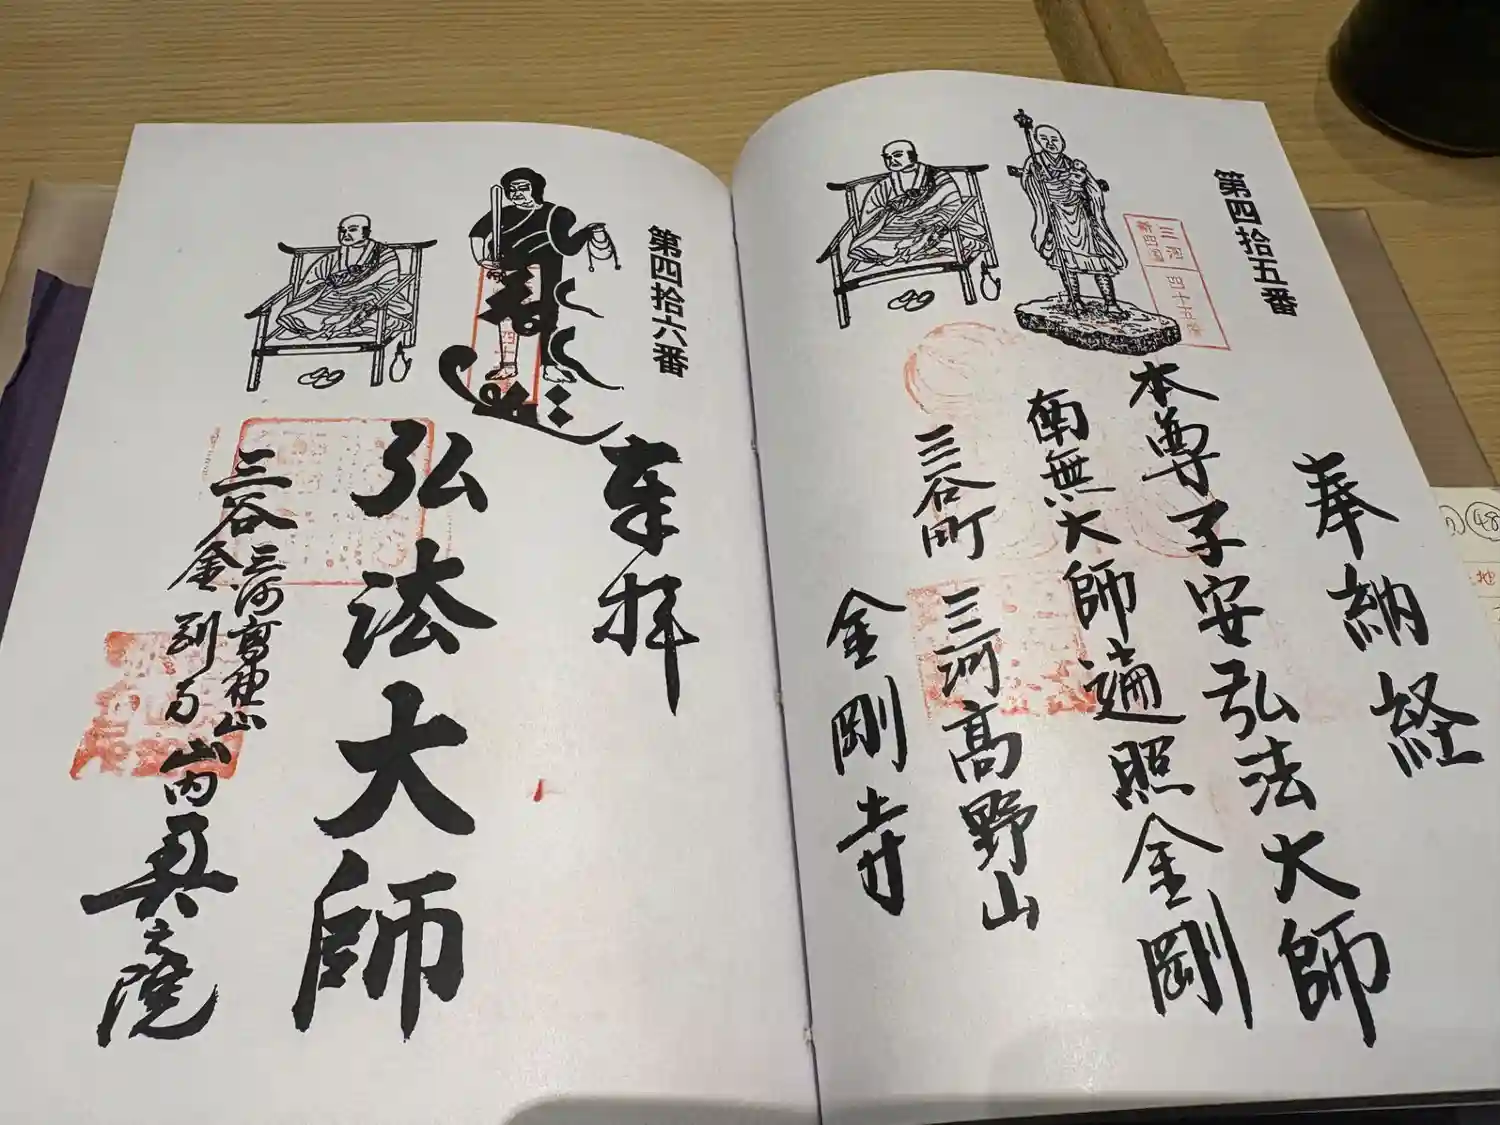 第四拾五番
三河
新四国
四十五番
奉納経
本尊子安弘法大師
南無大師遍照金剛
三谷町
三河高野山
金剛寺
第四拾六番
奉拝
弘法大師
三谷
三河高野山
金剛寺山内
奥之院
48